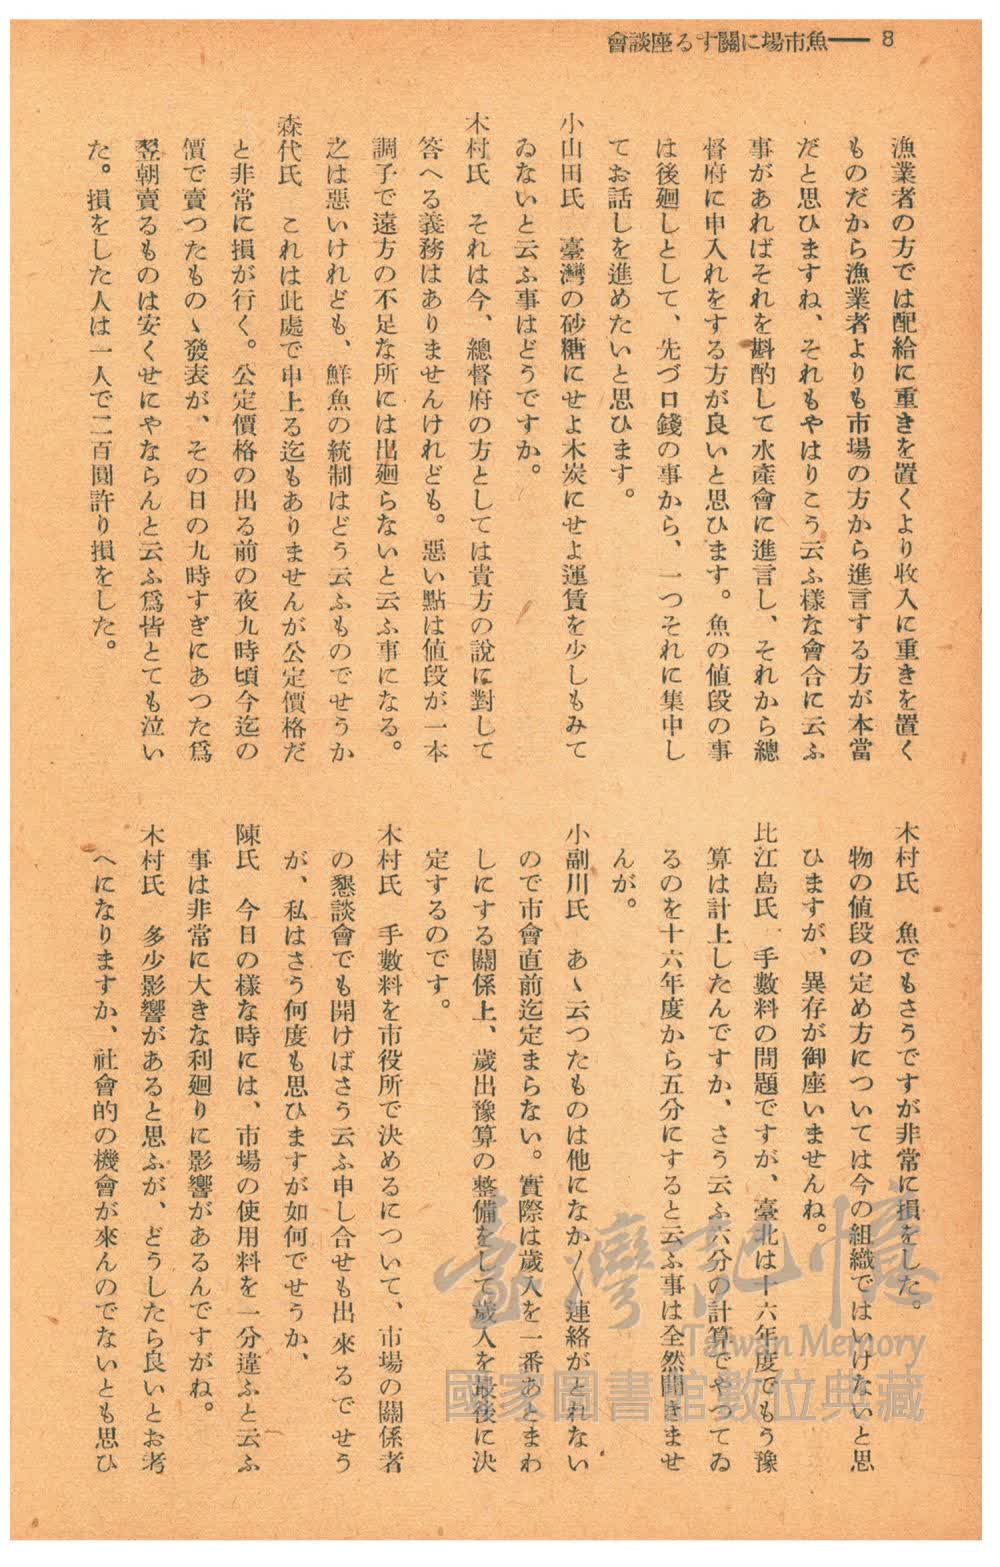 8 ——魚市場に關する座談會
漁業者の方では配給に重きを置くより收入に重きを置く
ものだから漁業者よりも市場の方から進言する方が本當
だと思ひますね、それもやはりこう云ふ樣な會合に云ふ
事があればそれを斟酌して水產會に進言し、それから總
督府に申入れをする方が良いと思ひます。魚の値段の事
は後廻しとして、先づ口錢の事から、一つそれに集中し
てお話しを進めたいと思ひます。
小山田氏　臺灣の砂糖にせよ木炭にせよ運賃を少しもみて
ゐないと云ふ事はどうですか。
木村氏　それは今、總督府の方としては貴方の說に對して
答へる義務はありませんけれども。惡い點は値段が一本
調子で遠方の不足な所には出廻らないと云ふ事になる。
之は惡いけれども、鮮魚の統制はどう云ふものでせうか
森代氏　これは此處で申上る迄もありませんが公定價格だ
と非常に損が行く。公定價格の出る前の夜九時頃今迄の
價で賣つたものヽ發表が、その日の九時すぎにあつた爲
翌朝賣るものは安くせにやならんと云ふ爲皆とても泣い
た。損をした人は一人で二百圓許り損をした。
木村氏　魚でもさうですが非常に損をした。
物の値段の定め方については今の組織ではいけないと思
ひますが、異存が御座いませんね。
比江島氏　手數料の問題ですが、臺北は十六年度でもう豫
算は計上したんですか、さう云ふ六分の計算でやつてゐ
るのを十六年度から五分にすると云ふ事は全然聞きませ
んが。
小副川氏　あヽ云つたものは他になか〳〵連絡がとれない
ので市會直前迄定まらない。實際は歲入を一番あとまわ
しにする關係上、歲出豫算の整備をして歲入を最後に決
定するのです。
木村氏　手數料を市役所で決めるについて、市場の關係者
の懇談會でも開けばさう云ふ申し合せも出來るでせう
が、私はさう何度も思ひますが如何でせうか、
陳氏　今日の樣な時には、市場の使用料を一分違ふと云ふ
事は非常に大きな利廻りに影響があるんですがね。
木村氏　多少影響があると思ふが、どうしたら良いとお考
へになりますか、社會的の機會が來んのでないとも思ひ
臺灣記憶
Taiwan Memory
國家圖書館數位典藏